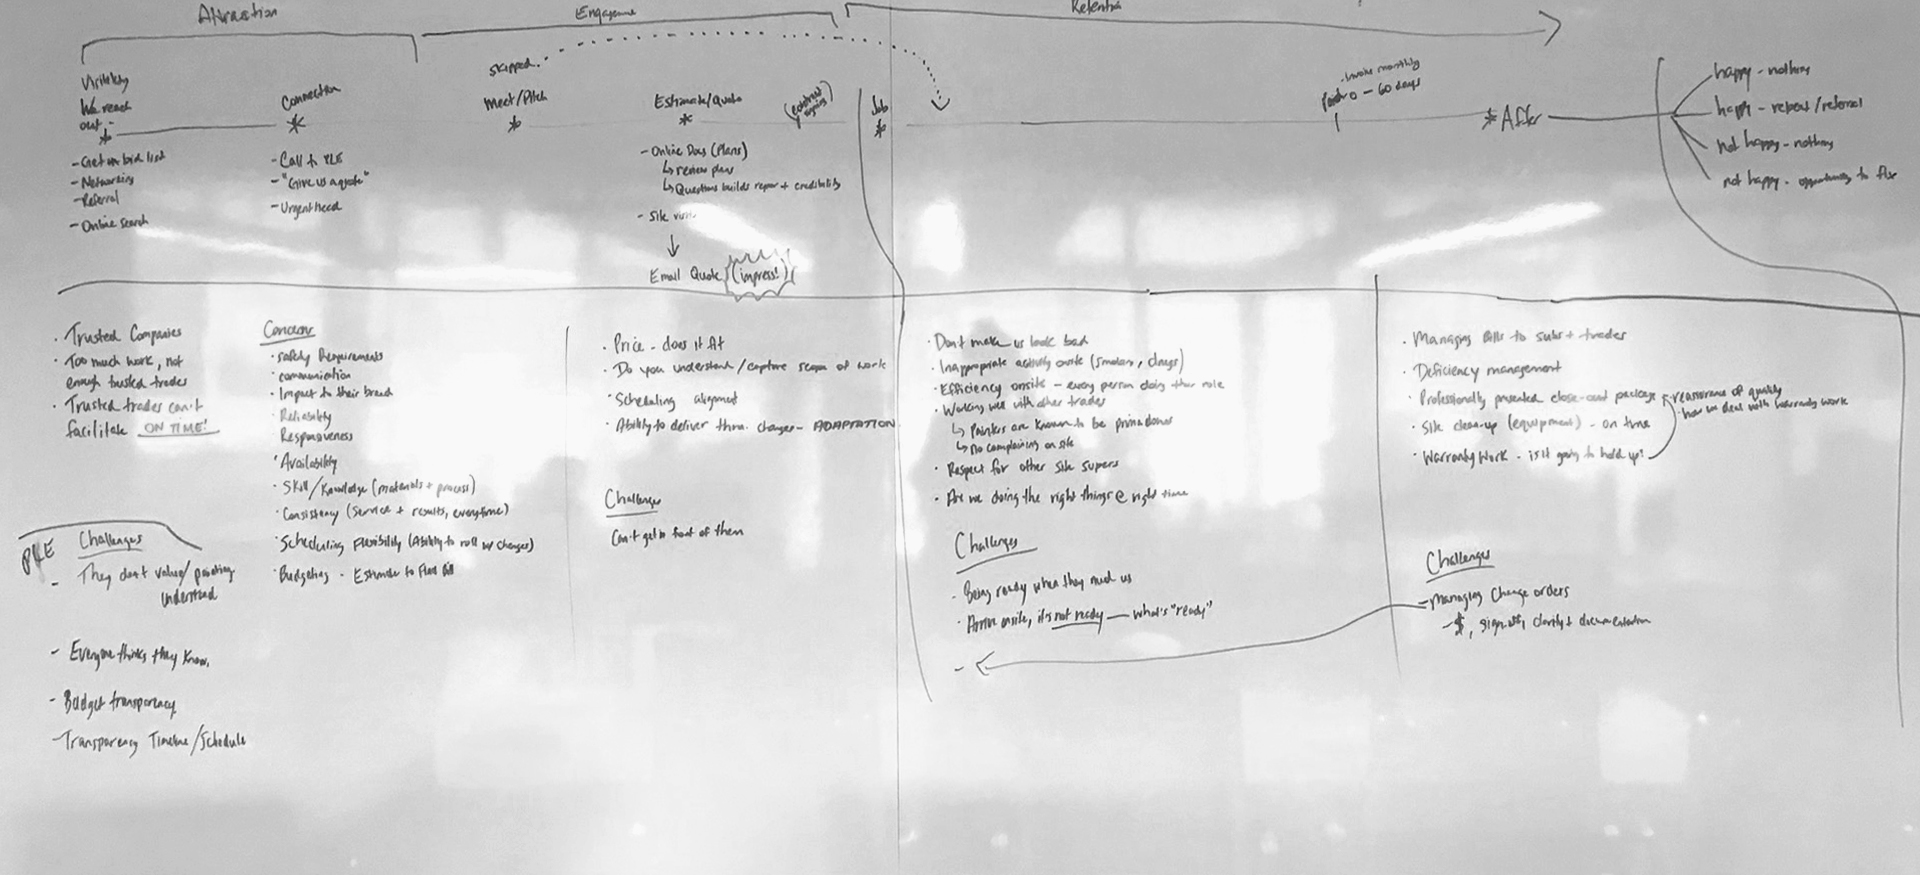 Attraction
Engageme
Retentio
Visibility
We reach
out -
Connection
skipped.
Meet/Pitch
Estimate/Quote
(contract
signing)
Job
- Invoice monthly
paid 0 - 60 days
After
happy - nothing
happy - repeat/referral
not happy - nothing
not happy - opportunity to fix
- Get on bid list
- Networking
- Referral
- Online search
- Call to
- "Give us a quote"
- Urgent need
- Online Docs (Plans)
↳ review plans
↳ Questions builds repor + credibility
- Site visit
↓
Email Quote (impress!)
· Trusted Companies
· Too much work, not
enough trusted trades
· Trusted trades can't
facilitate ON TIME!
PRE Challenges
- They don't value/painting
understand
- Everyone thinks they know,
- Budget transparency
- Transparency Timeline/Schedule
Concerns
· Safety Requirements
· communication
· Impact to their brand
· Reliability
Responsiveness
· Availability
· Skill/Knowledge (materials + process)
· Consistency (service + results, everytime)
· Scheduling Flexibility (Ability to roll w/ changes)
· Budgeting - Estimate to Final Bill
· Price - does it fit
· Do you understand/capture scope of work
· Scheduling alignment
· Ability to deliver thru. changes - ADAPTATION
Challenges
Can't get in front of them
· Don't make us look bad
· Inappropriate activity onsite (smokers, drugs)
· Efficiency onsite - every person doing their role
· Working well with other trades
↳ Painters are known to be prima donnas
↳ No complaining on site
· Respect for other site supers
· Are we doing the right things @ right time
Challenges
- Being ready when they need us
· Arrive onsite, it's not ready — what's "ready"
-
· Managing Bills to subs + trades
· Deficiency management
· Professionally presented close-out package
- reassurance of quality
- how we deal with warranty work
· Site clean-up (equipment) - on time
· Warranty Work - is it going to hold up?
Challenges
- Managing Change orders
- $, sign off, clarity + documentation